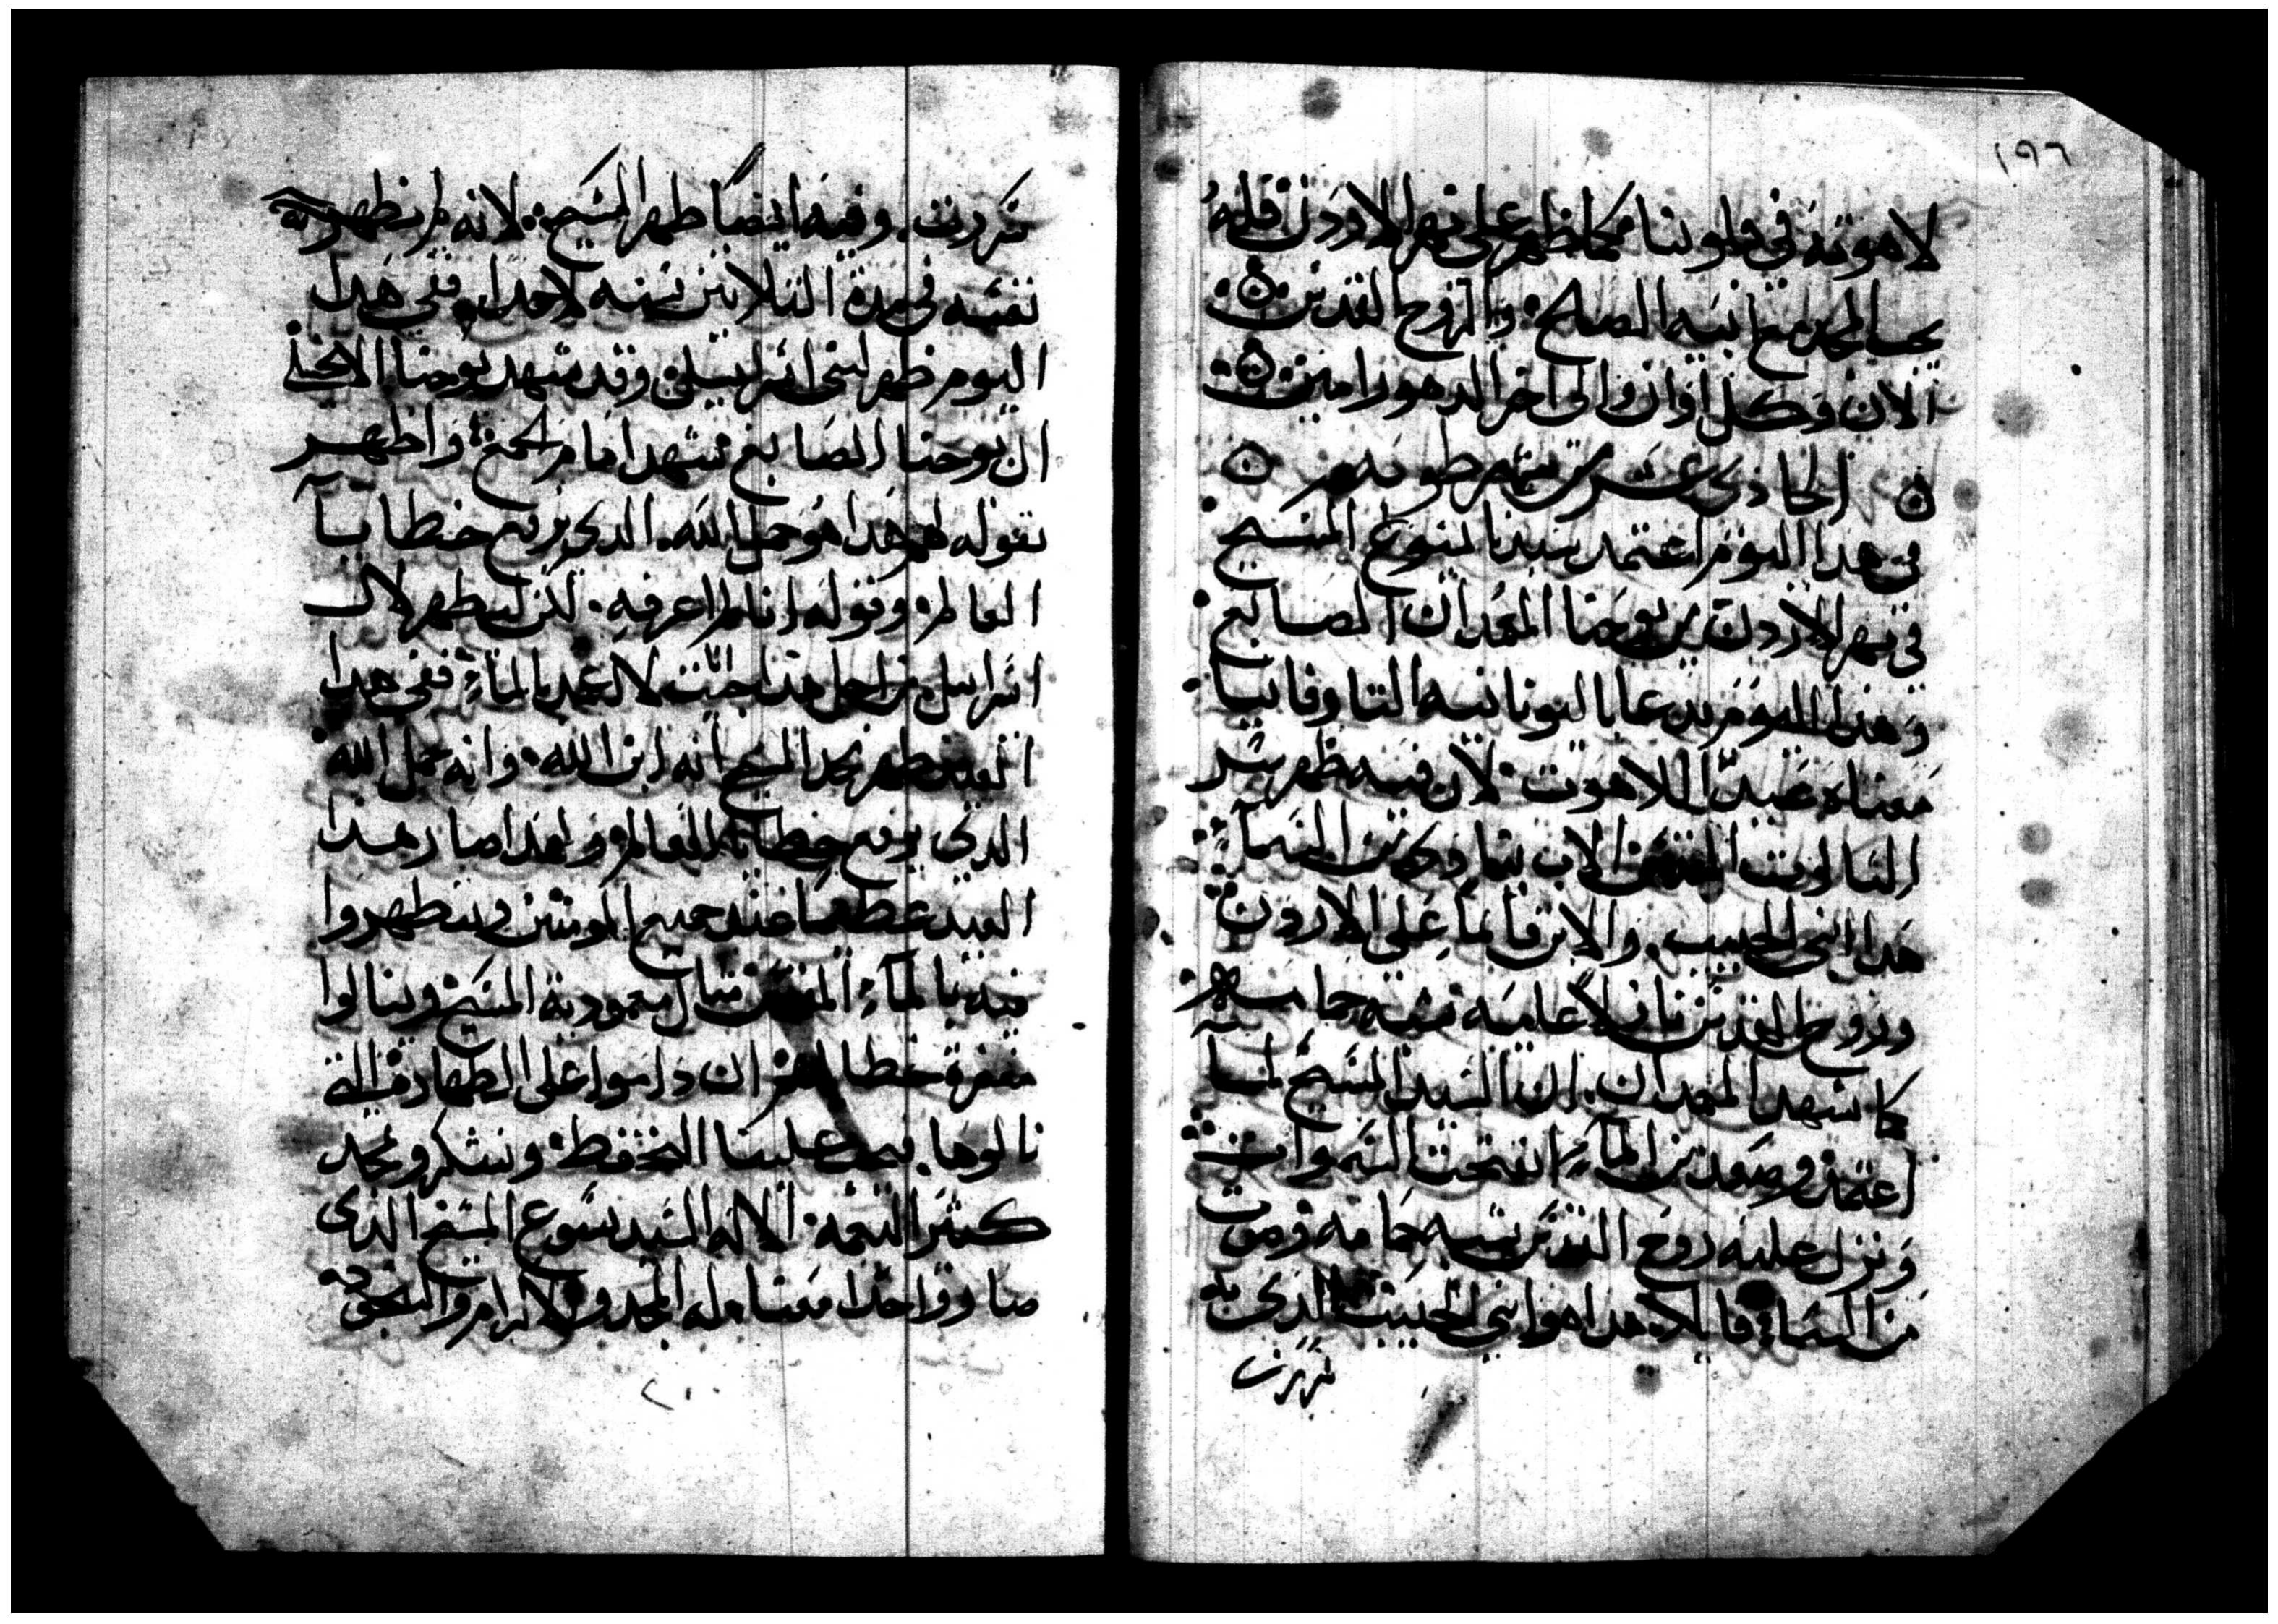 ١٩٦
لاهوته في قلوبنا كما ظهر على نهر الاردن فله
يجب المجد مع ابيه الصالح والروح القدس
الان وكل اوان والى اخر الدهور امين
الحادي عشر من شهر طوبه
في هدا اليوم اعتمد سيدنا يسوع المسيح
في نهر الاردن من يوحنا المعمدان الصابغ
وهدا اليوم يدعا باليونانيه التاوفانيا
معناه عيد اللاهوت لان فيه ظهر سر
التالوت المقدس الاب ينادي من السما
هدا ابني الحبيب والابن قايما على الاردن
وروح القدس نازلا عليه شبه حمامه
كما شهد المعمدان ان السيد المسيح لما
اعتمد وصعد من الماء انفتحت السموات
ونزل عليه روح القدس شبه حمامه وصوت
من السماء قايلا هدا هو ابني الحبيب الدي به
سررت
سررت وفيه ايضا ظهر المسيح لانه لم يظهر
نفسه في مدة التلاتين سنه لاحد ففي هدا
اليوم ظهر لبني اسراييل وقد شهد يوحنا الانجيلي
ان يوحنا الصابغ شهد امام الجمع واظهر
بقوله لهم هدا هو حمل الله الدي يرفع خطايا
العالم وقوله انا لم اعرفه لكن ليظهر لال
اسراييل من اجل هدا جيت لاعمد بالماء ففي هدا
العيد ظهر مجد المسيح انه ابن الله وانه حمل الله
الدي يرفع خطايا العالم ولهدا صار هدا
العيد عظيما عند جميع المومنين ويتطهروا
فيه بالماء المقدس متال معمودية المسيح وينالوا
مغفرة خطاياهم ان داموا على الطهارة التي
نالوها يجب علينا التحفظ ونشكر ونمجد
كثير النعمه الاله السيد يسوع المسيح الذي
صار واحدا معنا له المجد والاكرام والسجود
٢٠٠